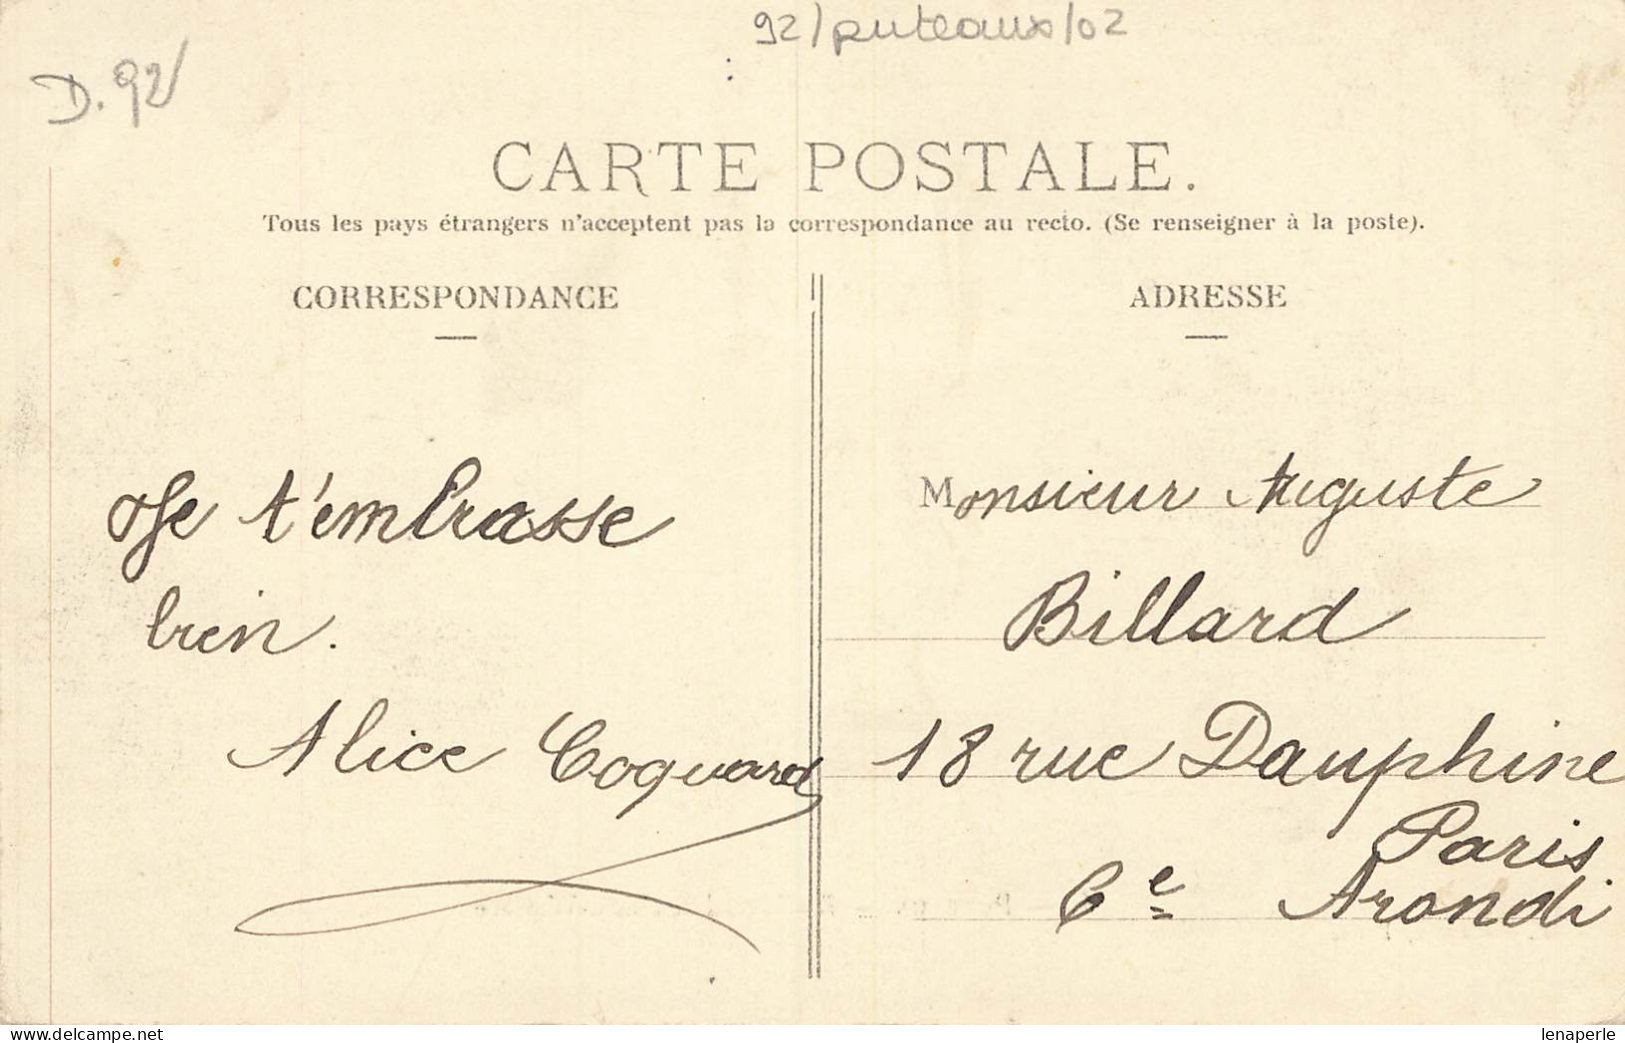 92/puteaux/02
D.92
CARTE POSTALE.
Tous les pays étrangers n'acceptent pas la correspondance au recto. (Se renseigner à la poste).
CORRESPONDANCE
Je t'embrasse
bien.
Alice Coquard
ADRESSE
Monsieur Auguste
Billard
18 rue Dauphine
Paris
6e Arondi
www.delcampe.net
lenaperle